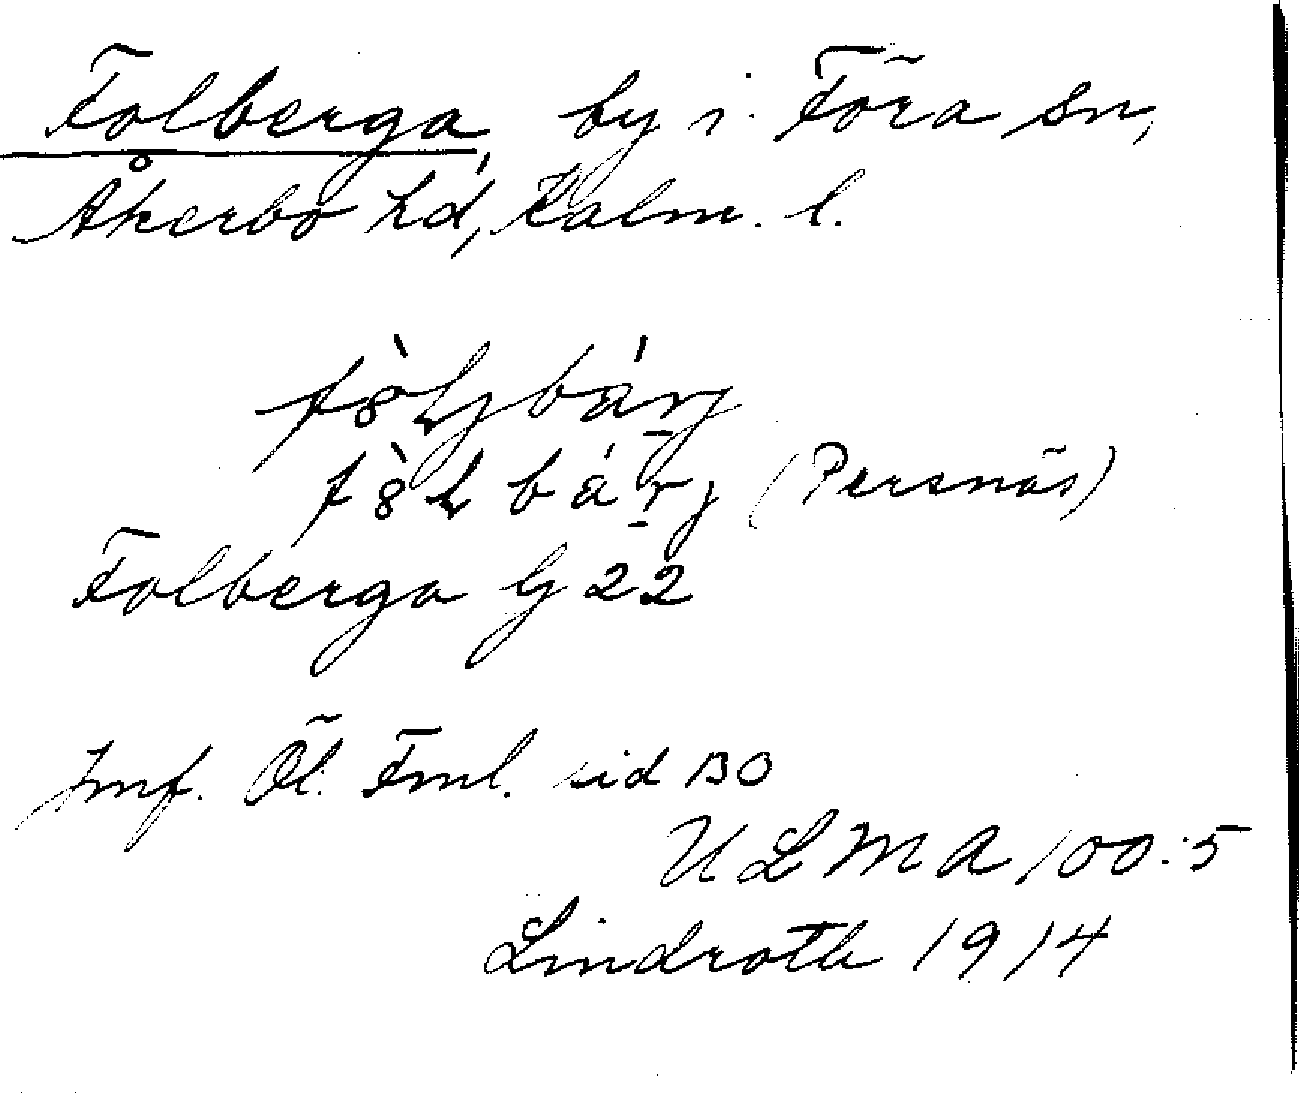 Folberga, by i Föra sn,
Åkerbo hd, Kalm. l.
(Persnäs)
Folberga G 22
Jmf. Öl. Fml. sid 130
ULMA 100:5
Lindroth 1914